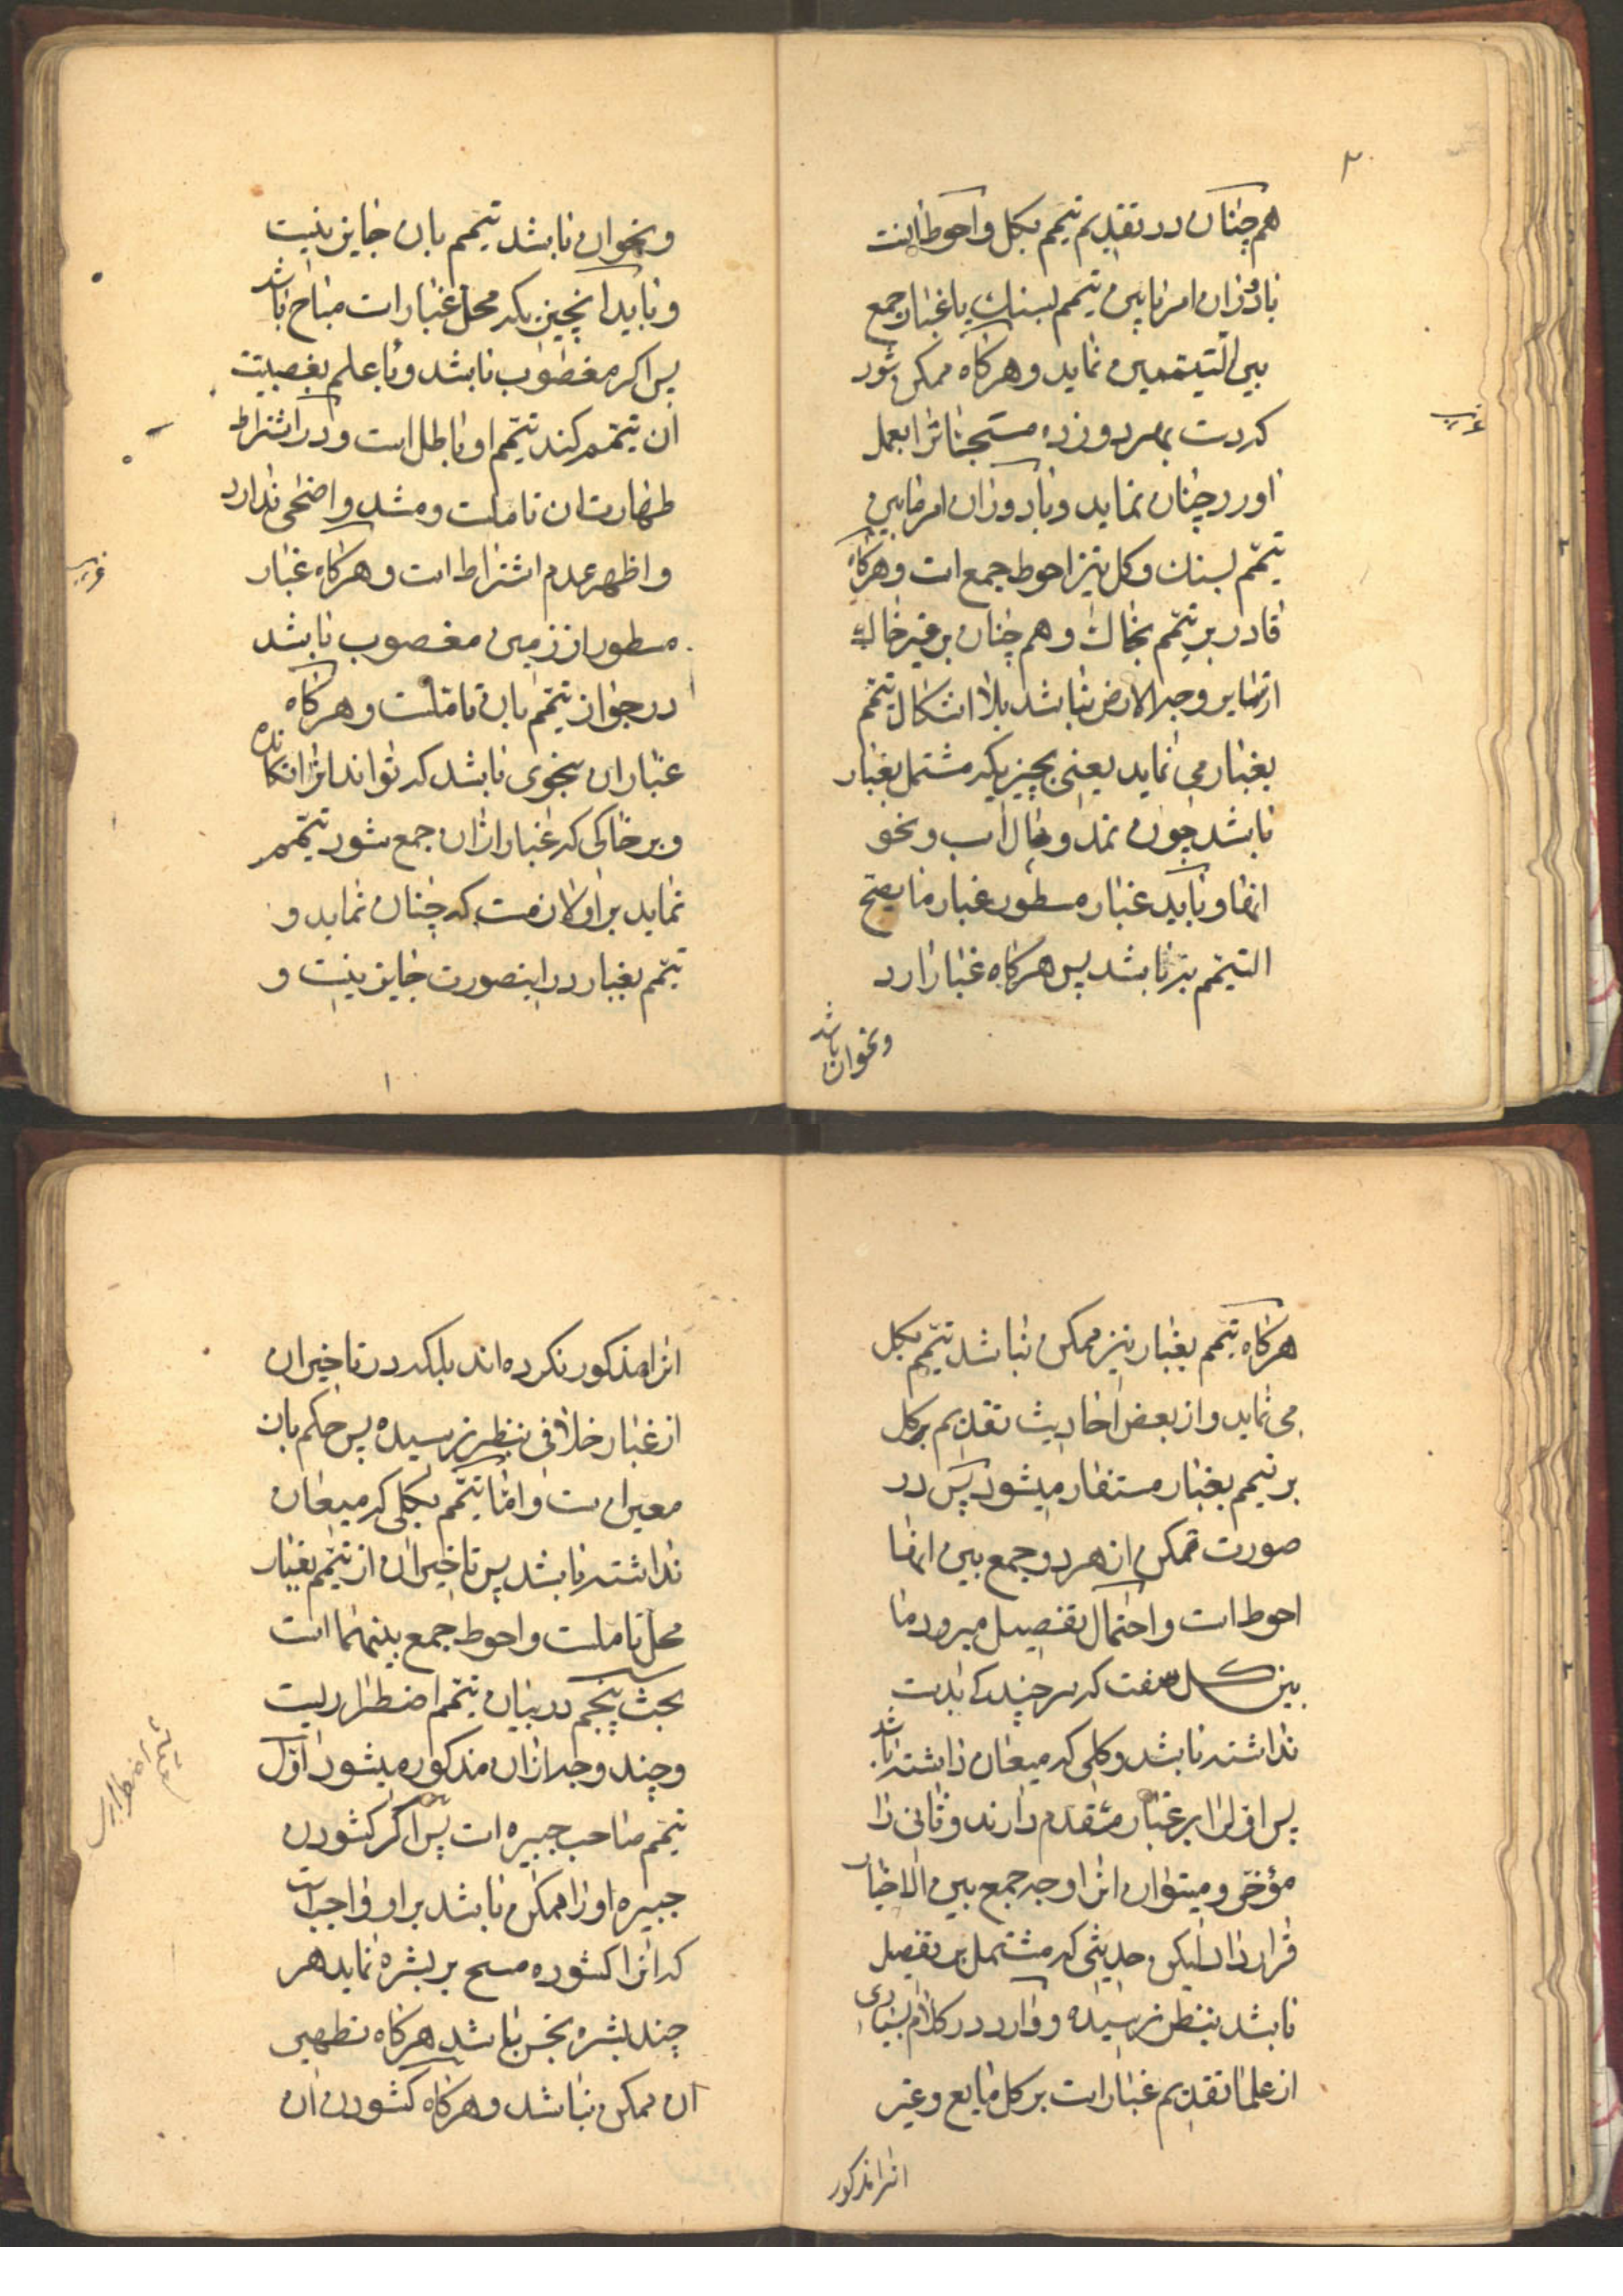 هم چنان در تقدیم تیمم بکل و احوط انست
با دوران امر مابین تیمم بسنک یا غبار جمع
بین التیممین نماید و هرکاه ممکن شود
که دست بهر دو زده مستحبات را بعمل
اورد چنان نماید و با دوران امر مابین
تیمم بسنک و کل نیز احوط جمع است و هرکاه
قادر بر تیمم بخاک و هم چنان بر غیر خاک
از سایر وجه الارض نباشد بلا اشکال تیمم
بغبار می نماید یعنی بچیزیکه مشتمل بغبار
باشد چون نمد و یال اسب و نحو
انها و باید غبار مسطور غبار ما یصح
التیمم به باشد پس هرکاه غبار ارد
و نحو ان باشد
و نحو ان باشد تیمم بان جایز نیست
و باید انچیزیکه محل غبار است مباح باشد
پس اکر مغصوب باشد و با علم بغصبیت
ان تیمم کند تیمم او باطل است و در اشتراط
طهارت ان تاملست و مشد واضحی ندارد
و اظهر عدم اشتراط است و هرکاه غبار
مسطور از زمین مغصوب باشد
در جواز تیمم بان تاملست و هرکاه
غبار ان بنحوی باشد که تواند انرا تکانده
و بر خاکی که غبار از ان جمع شود تیمم
نماید بر او لازمست که چنان نماید و
تیمم بغبار در اینصورت جایز نیست و
هرکاه تیمم بغبار نیز ممکن نباشد تیمم بکل
می نماید و از بعض احادیث تقدیم بر کل
بر تیمم بغبار مستفاد میشود پس در
صورت تمکن از هر دو جمع بین انها
احوط است و احتمال تفصیل میرود ما
بین کل سفت که هر چند
نداشته باشد و کلی که میعان داشته باشد
پس اول را بر غبار مقدم دارند و ثانی را
مؤخر و میتوان انرا وجه جمع بین الاخبار
قرار داد لیکن حدیثی که مشتمل بر تفصیل
باشد بنظر نرسیده و وارد در کلام بسیاری
از علما تقدیم غبار است بر کل مایع و غیر
انرا مذکور
انرا مذکور نکرده اند بلکه در تاخیر ان
از غبار خلافی بنظر نرسیده پس حکم بان
معین است و اما تیمم بکلی که میعان
نداشته باشد پس تاخیر ان از تیمم بغبار
محل تاملست و احوط جمع بینهما است
بحث پنجم در بیان تیمم اضطراریست
و چند وجه از ان مذکور میشود اول
تیمم صاحب جبیره است پس اکر کشودن
جبیره او را ممکن باشد بر او واجب است
که انرا کشوده مسح بر بشره نماید هر
چند بشره نجس باشد هرکاه تطهیر
ان ممکن نباشد و هرکاه کشودن ان